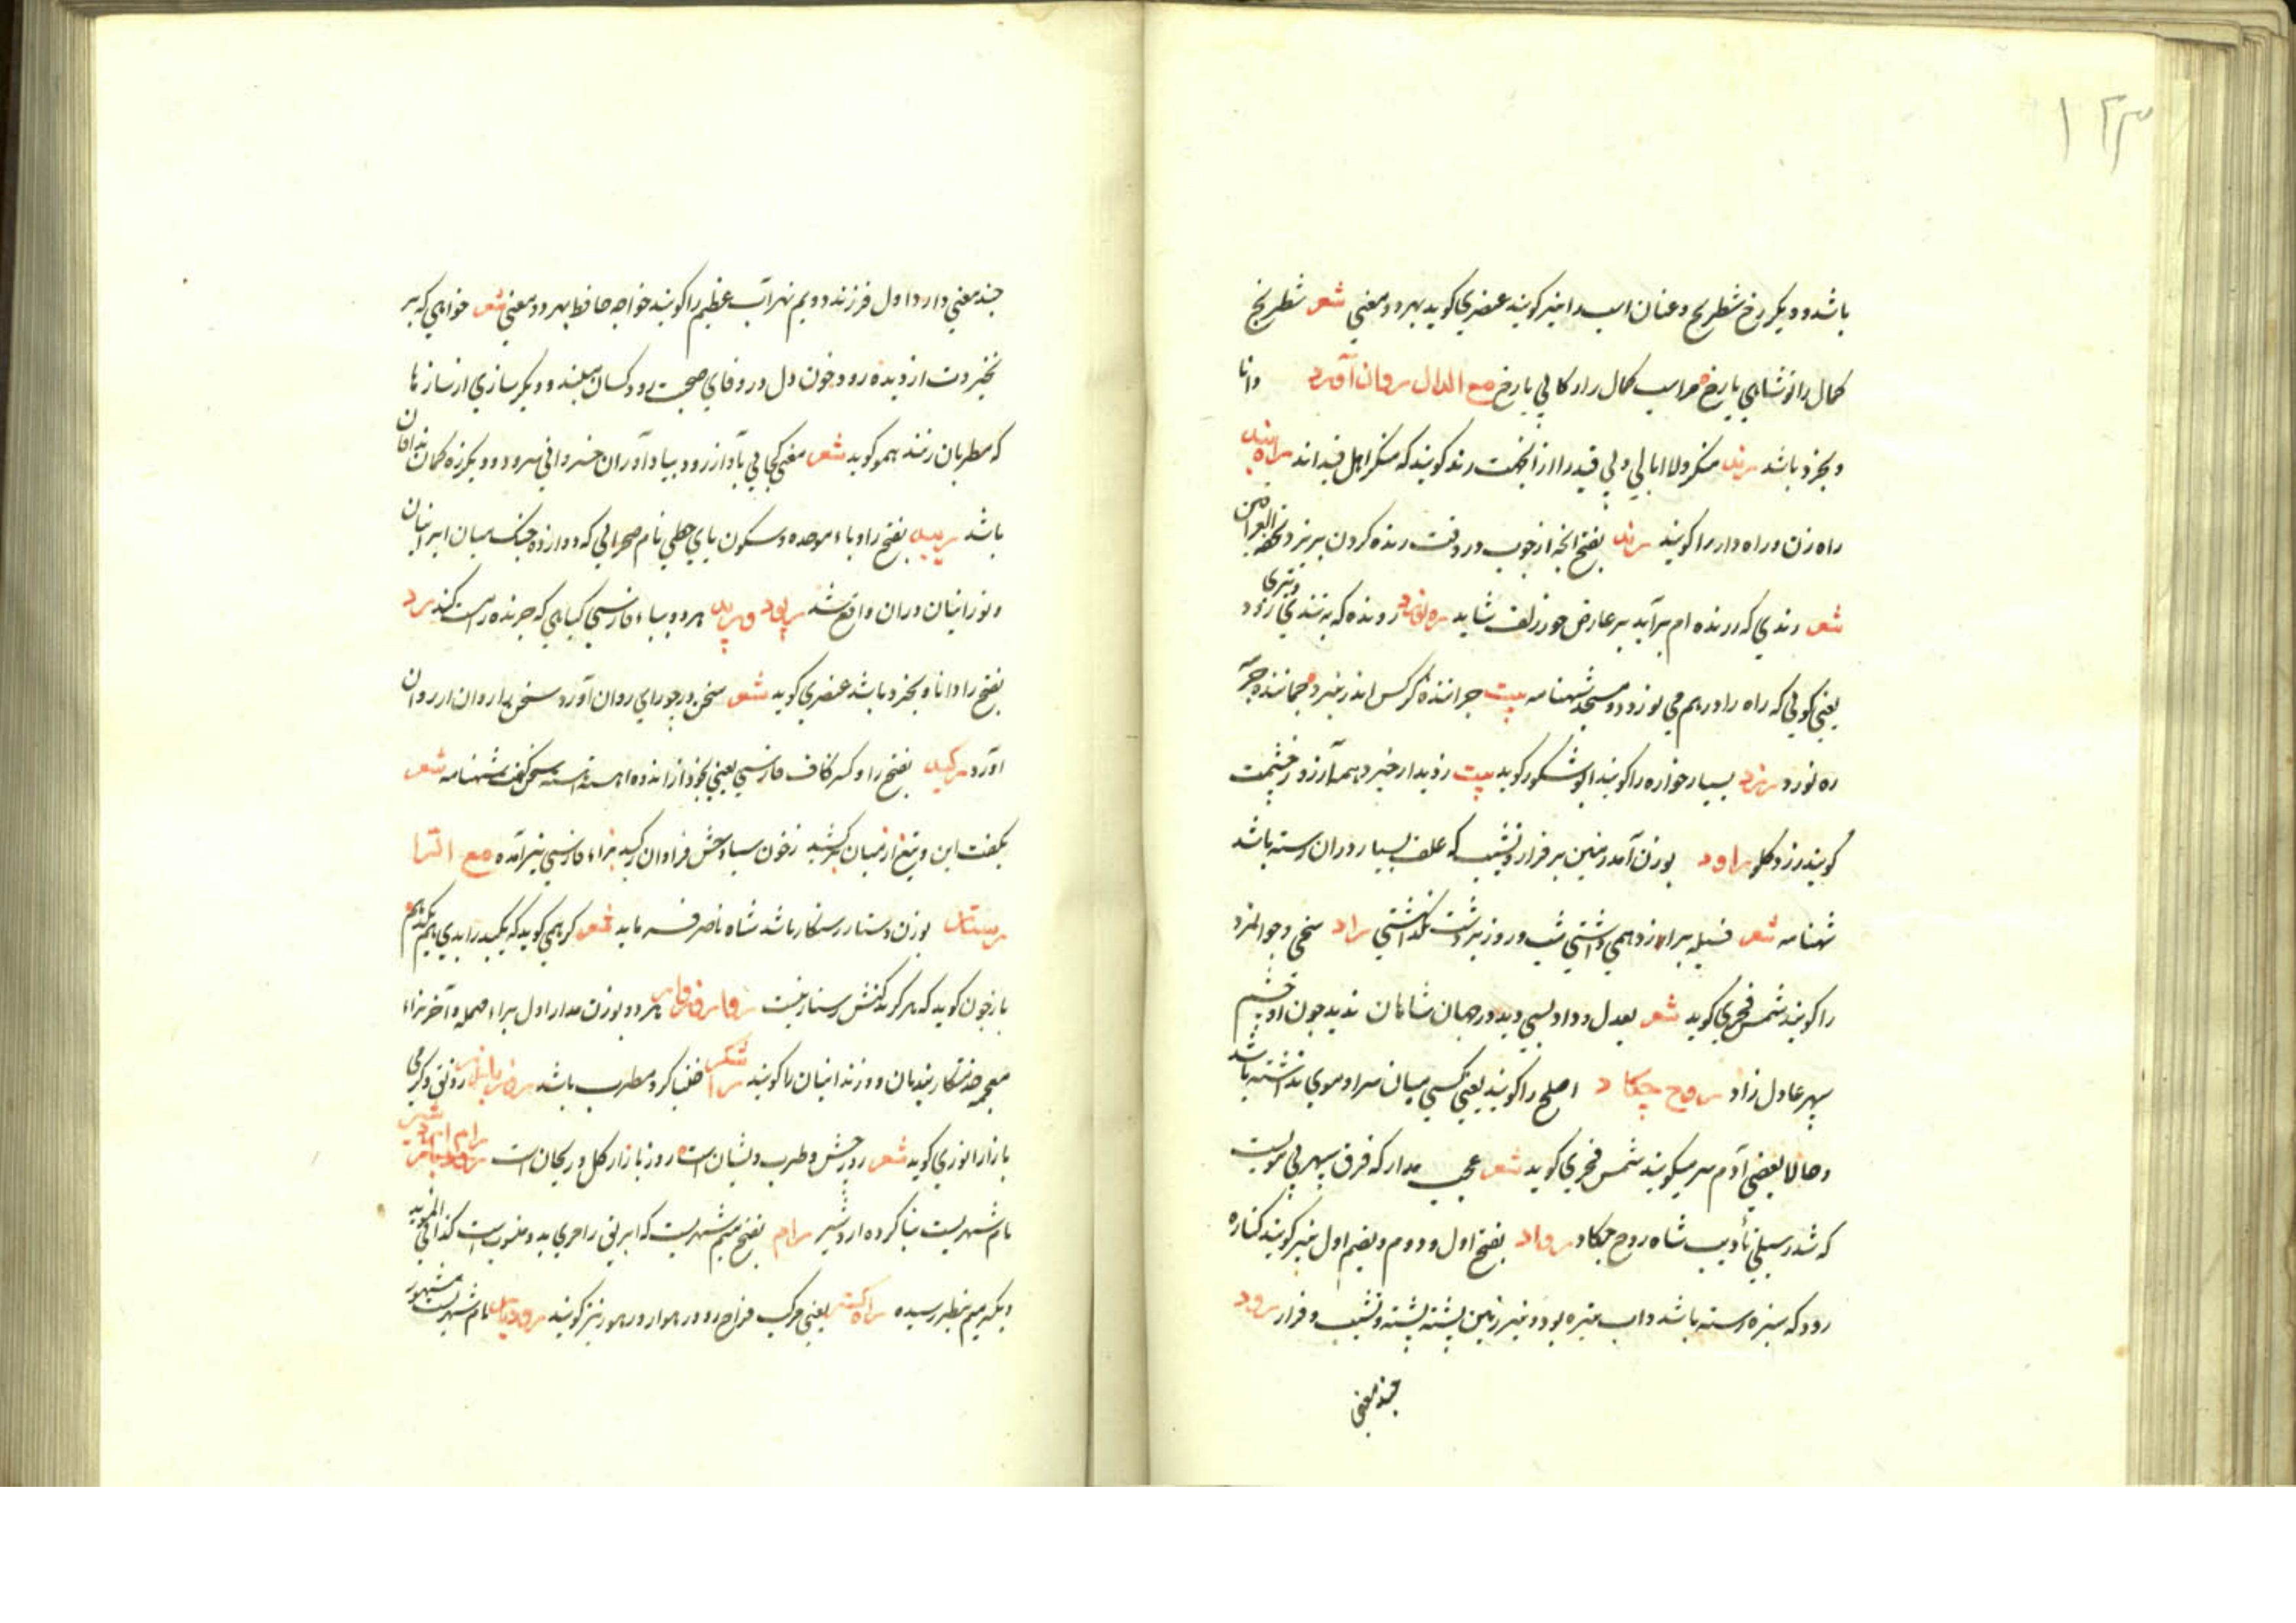 ۱۲۳
باشد و دیگر رخ شطرنج و عنان اسب را نیز کویند عنصری کوید بهر دو معنی شعر شطرنج
کمال را تو شاهی یا رخ مر اسب کمال را رکابی یا رخ مع الدال روان آورد دانا
و بخرد باشد رند منکر و لاابالی و بی قید را از آنجهت رند کویند که منکر اهل قیداند راه بند
راه زن و راه دار را کویند رند بفتح انچه از چوب در وقت رنده کردن بریزد
شعر رندی که ز رنده ام برآید بر عارض حور زلف شاید ره نورد رونده که به تندی و تیزی رود
یعنی کویی که راه را در هم می نوردد شهنامه بیت چراننده کرکس اندر نبرد چماننده چرمه
ره نورد رزد بسیار خواره را کویند ابو شکور کوید بیت ز دیدار خیزد همه آرزو ز چشمست
کویند رزد کلو راود بوزن آمد زمین پر فراز و نشیب که علف بسیار در آن رسته باشد
شهنامه شعر فسیله براود همی داشتی شب و روز بر دشت نکذاشتی راد سخی و جوانمرد
را کویند شمس فخری کوید شعر بعدل و داد بسی دید در جهان شاهان ندید چون او چشم
سپهر عادل و راد روح چکاد اصلع را کویند یعنی کسی میان سر او موی نداشته باشد
و حالا بعضی آدم سر میکویند شمس فخری کوید شعر عجب مدار که فرق سپهر بی مویست
که شد ز سیلی تأدیب شاه روح چکاد رواد بفتح اول و دوم و بضم اول نیز کویند کناره
رود که سبزه رسته باشد و اب تیره بود و نیز زمین پشته پشته و نشیب و فراز رود
چند معنی
چند معنی دارد اول فرزند دویم نهر آب عظیم را کویند خواجه حافظ بهر دو معنی شعر خواهی که بر
نخیزدت از دیده رود خون دل در وفای صحبت رود کسان مبند و دیگر سازی از سازها
که مطربان زنند همو کوید شعر مغنی کجایی بآواز رود بیاد آور آن خسروانی سرود و دیگر زه کمان ندافان
باشد ریبد بفتح را و باء موحده و سکون یای حطی نام صحرایی که دوازده جنک میان ایرانیان
و تورانیان در ان واقع شد رپود و رپد هر دو بباء فارسی کیاهی که چرنده را مست کند رد
بفتح را دانا و بخرد باشد عنصری کوید شعر سخن ور چو رای روان آورد سخن بر زبان
آورد رکید بفتح را و کسر کاف فارسی یعنی بخود از اندوه آهسته آهسته سخن کفت شهنامه شعر
بکفت این و تیغ از میان برکشید ز خون سیاوش فراوان رکید بزاء فارسی نیز آمده مع الرا
رستار بوزن دستار رستکار باشد شاه ناصر فرماید شعر کر همی کوید که یکبد را بدی یکم کنم
باز چون کوید که هر کز بدکنش رستار نیست هر دو بوزن مدار اول براء مهمله و آخر بزاء
معجمه خدمتکار بندیان و زندانیان را کویند رامشکر خنیاکر و مطرب باشد روز بازار رونق و کرمی
بازار انوری کوید شعر روز جش و طرب و بستان است روز بازار کل و ریحان است رام اردشیر
نام شهریست بنا کرده اردشیر رام بفتح میم شهریست که ابریق رامری بدو منسوبست کذا فی المؤید
و بکسر میم بنظر رسیده یعنی مرکب فراخ رو و رهوار و رهور نیز کویند رودبار نام شهریست مشهور